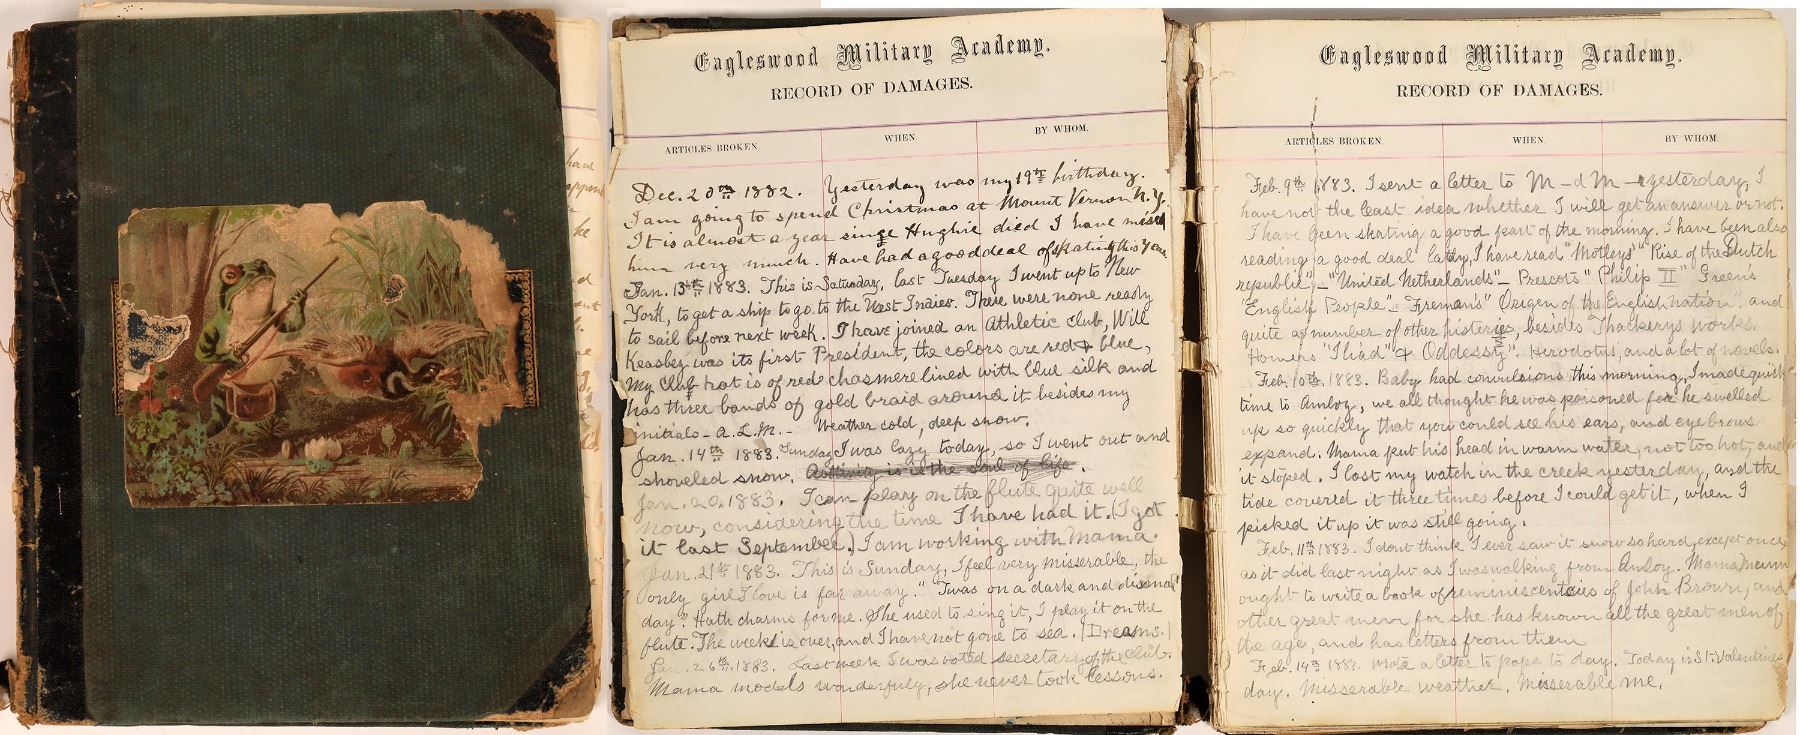 have
appen
he
Eagleswood Military Academy.
RECORD OF DAMAGES.
ARTICLES BROKEN. WHEN. BY WHOM.
Dec. 20th 1882. Yesterday was my 19th birthday.
I am going to spend Christmas at Mount Vernon N.Y.
It is almost a year since Hughie died I have missed
him very much. Have had a good deal of skating this year.
Jan. 13th 1883. This is Saturday, last Tuesday I went up to New
York, to get a ship to go to the West Indies. There were none ready
to sail before next week. I have joined an Athletic club, Will
Keasbey was its first President, the colors are red & blue,
My Club hat is of red chasmere lined with blue silk and
has three bands of gold braid around it besides my
initials - A.L.M. - Weather cold, deep snow.
Jan. 14th 1883. Sunday I was lazy today, so I went out and
shoveled snow. is the soul of life.
Jan. 20. 1883. I can play on the flute quite well
now, considering the time I have had it. (I got
it last September.) I am working with Mama.
Jan. 21st 1883. This is Sunday, I feel very misserable, the
only girl I love is far away. "Twas on a dark and dismal
day". Hath charms for me. She used to sing it, I play it on the
flute. The week is over, and I have not gone to sea. (Dreams.)
Jan. 26th 1883. Last week I was voted secretary of the club.
Mama models wonderfuly, she never took lessons.
Eagleswood Military Academy.
RECORD OF DAMAGES.
ARTICLES BROKEN. WHEN. BY WHOM.
Feb. 9th 1883. I sent a letter to M-d M-r yesterday, I
have not the least idea whether I will get an answer or not.
I have been skating a good part of the morning. I have been also
reading a good deal lately, I have read "Motleys" Rise of the Dutch
republic" - "United Netherlands" - Prescots "Philip II" Greens
"English People" - Fremans "Origen of the English nation", and
quite a number of other histories, besides Thackerys works.
Homers "Iliad" & Oddessy". Herodotus, and a lot of novels.
Feb. 10th. 1883. Baby had convulsions this morning, I made quick
time to Amboy, we all thought he was poisoned for he swelled
up so quickly that you could see his ears, and eyebrows
expand. Mama put his head in warm water, not too hot, and
it stoped. I lost my watch in the creek yesterday, and the
tide covered it three times before I could get it, when I
picked it up it was still going.
Feb. 11th 1883. I dont think I ever saw it snow so hard, except once,
as it did last night as I was walking from Amboy. Mama Mann
ought to write a book of reminiscentcies of John Brown, and
other great men for she has known all the great men of
the age, and has letters from them
Feb. 14th 1883. Wrote a letter to papa to day. Today is St. Valentines
day. Misserable weather. Misserable me.